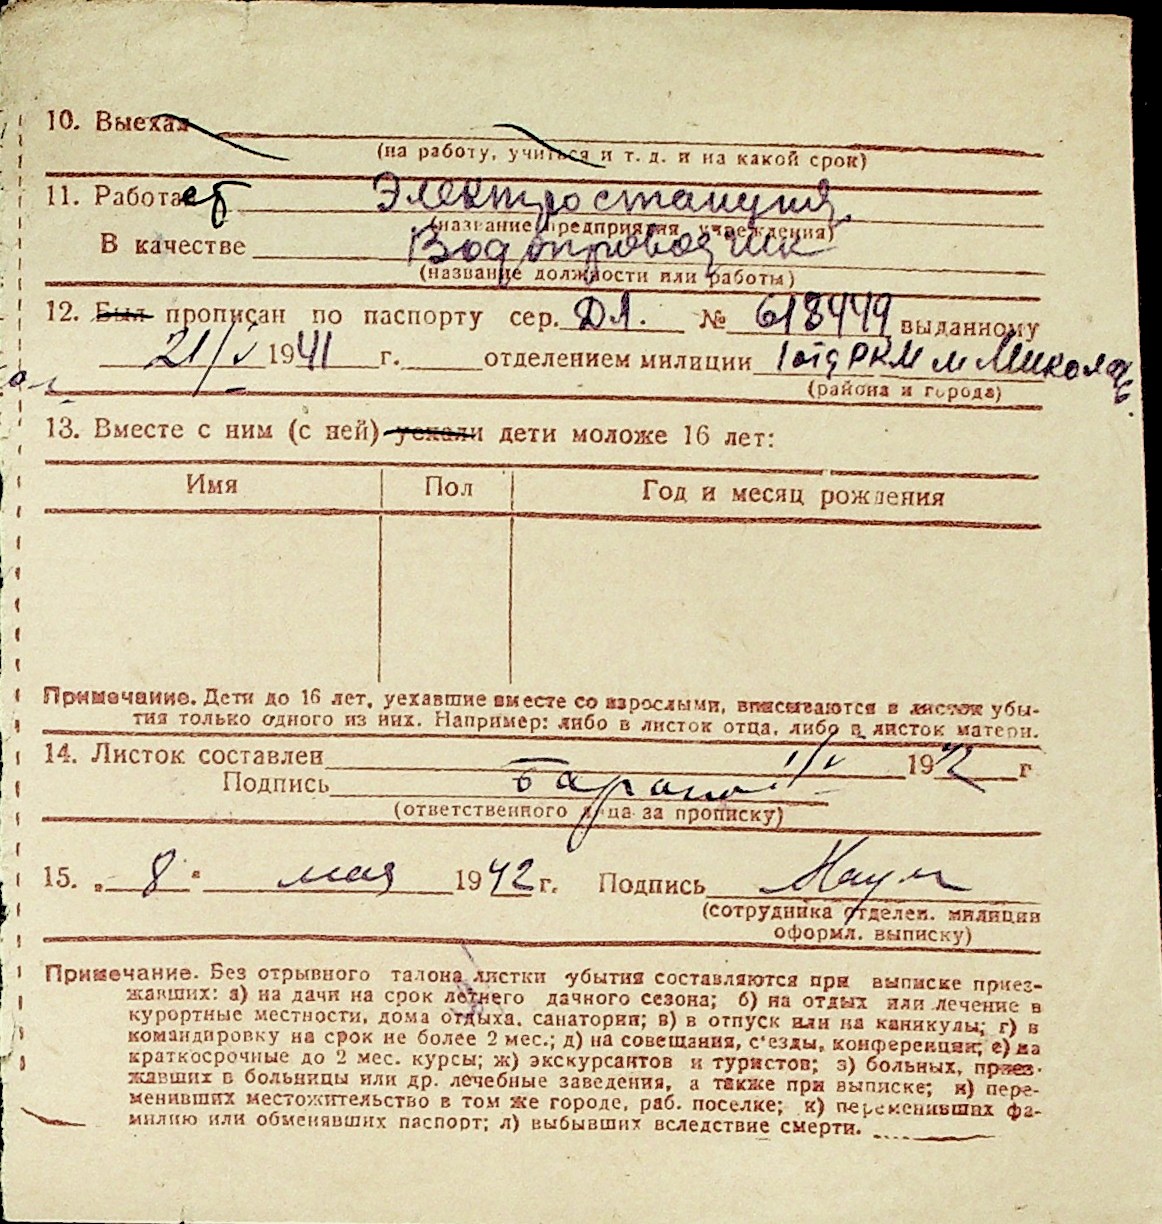 10. Выехал
(на работу, учиться и т. д. и на какой срок)
11. Работает Электростанция
(название предприятия, учреждения)
В качестве Водопроводчик
(название должности или работы)
12. Был прописан по паспорту сер. ДЛ. № 618449 выданному
21/V 1941 г. отделением милиции 1 отд РКМ м
(района и города)
13. Вместе с ним (с ней) уехали дети моложе 16 лет:
Имя Пол Год и месяц рождения
Примечание. Дети до 16 лет, уехавшие вместе со взрослыми, вписываются в листок убы-
тия только одного из них. Например: либо в листок отца, либо в листок матери.
14. Листок составлен 1/V 1942 г
Подпись
(ответственного лица за прописку)
15. „ 8 " мая 1942 г. Подпись
(сотрудника отделен. милиции
оформл. выписку)
Примечание. Без отрывного талона листки убытия составляются при выписке приез-
жавших: а) на дачи на срок летнего дачного сезона; б) на отдых или лечение в
курортные местности, дома отдыха, санатории; в) в отпуск или на каникулы; г) в
командировку на срок не более 2 мес.; д) на совещания, с'езды, конференции; е) на
краткосрочные до 2 мес. курсы; ж) экскурсантов и туристов; з) больных, приез-
жавших в больницы или др. лечебные заведения, а также при выписке; и) пере-
менивших местожительство в том же городе, раб. поселке; к) переменивших фа-
милию или обменявших паспорт; л) выбывших вследствие смерти.